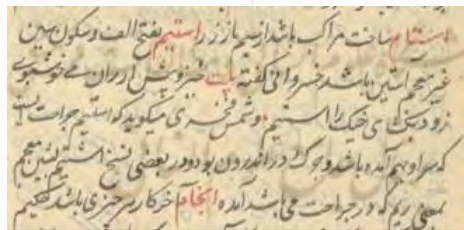 استام ساخت مراکب باشد از سیم یا زر استیم بفتح الف و سکون سین
غیر معجم آستین باشد خسروانی گفته بیت خیز و پیش آر زان می خوشبوی
زود بگشای خیک را استیم و شمس فخری میگوید که استیم جراحت است
که سر او بهم آمده باشد و چرک در اندرون بود و در بعضی نسخ اشتیم بشین معجم
بمعنی ریم که در جراحت می باشد آمده انجام آخر کار و چیزی باشد حکیم